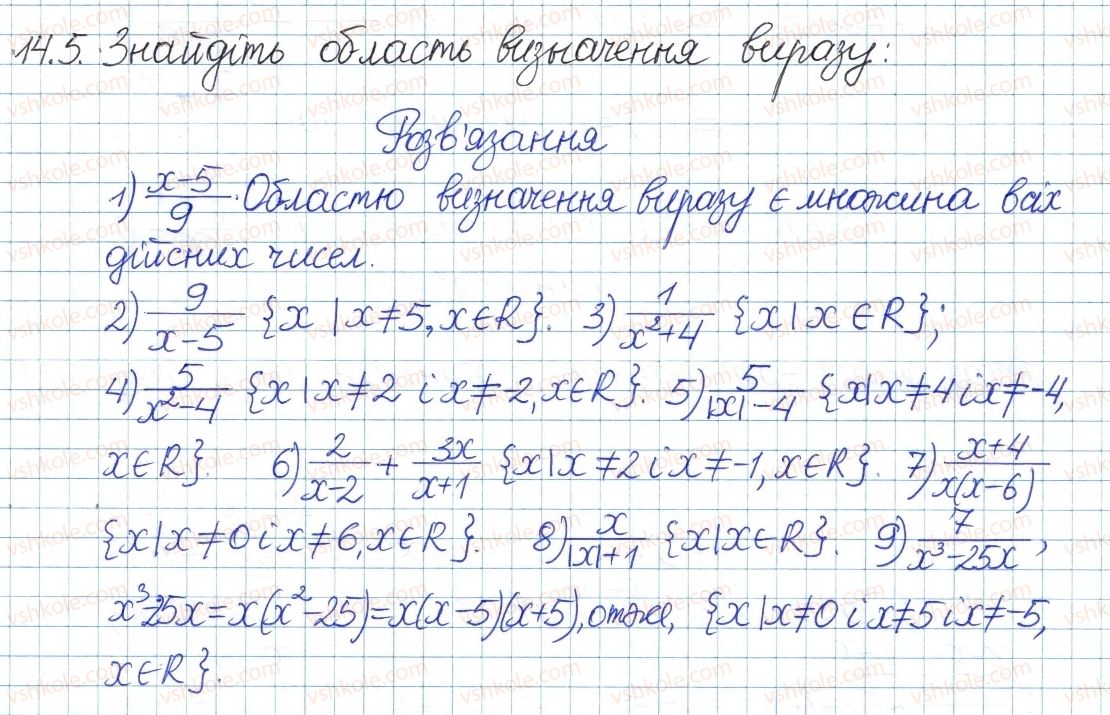 14.5. Знайдіть область визначення виразу:
Розв'язання
1) (x-5)/9. Областю визначення виразу є множина всіх
дійсних чисел.
2) 9/(x-5) {x | x≠5, x∈R}. 3) 1/(x²+4) {x | x∈R};
4) 5/(x²-4) {x | x≠2 і x≠-2, x∈R}. 5) 5/(|x|-4) {x | x≠4 і x≠-4,
x∈R}. 6) 2/(x-2) + 3x/(x+1) {x | x≠2 і x≠-1, x∈R}. 7) (x+4)/(x(x-6))
{x | x≠0 і x≠6, x∈R}. 8) x/(|x|+1) {x | x∈R}. 9) 7/(x³-25x),
x³-25x=x(x²-25)=x(x-5)(x+5), отже, {x | x≠0 і x≠5 і x≠-5,
x∈R}.
vshkole.com